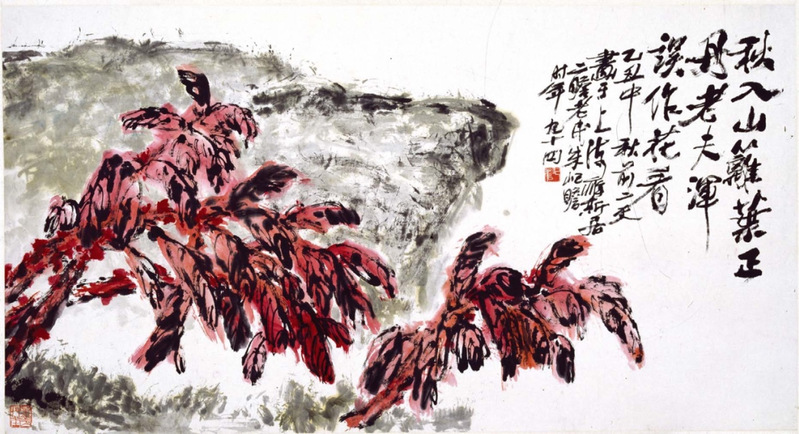 秋入山籬葉正
丹老夫渾
誤作花看
乙丑中秋前二天
畫于上海癖斯居
二瞻老民朱屺瞻
時年九十四